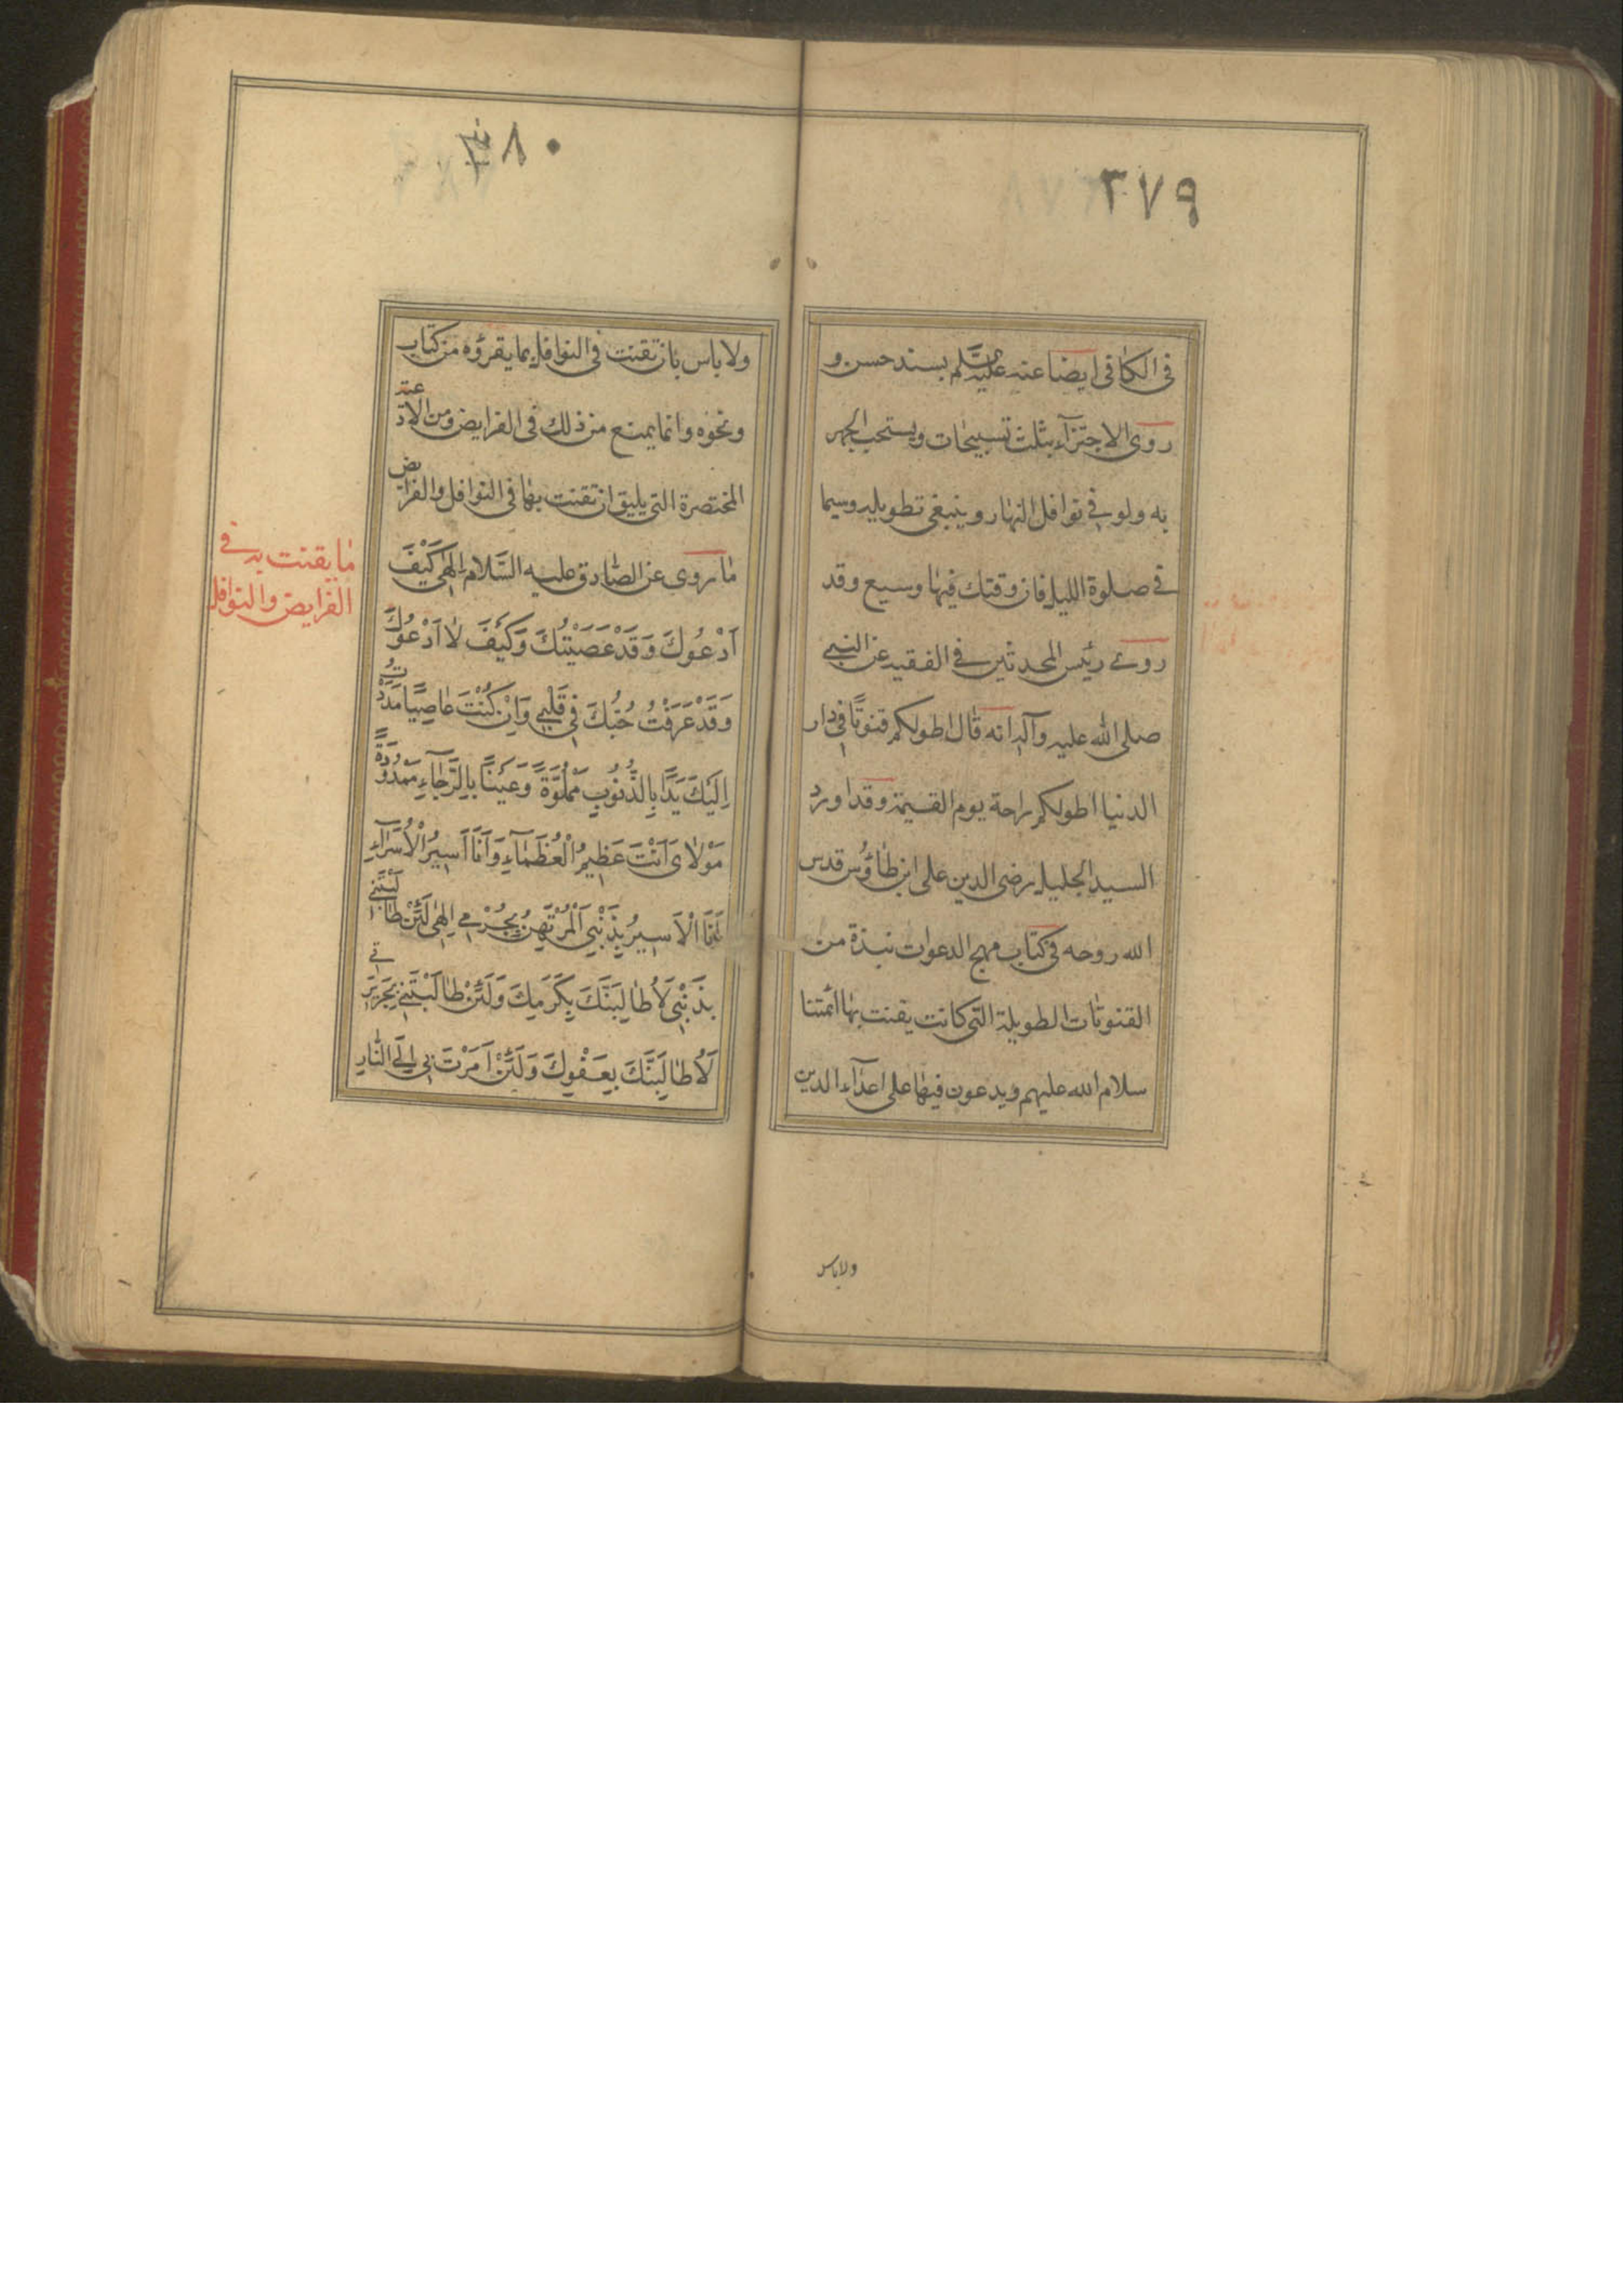 ٣٧٩
في الكافي ايضا عنه عليه السلم بسند حسن و
روى الاجتزآء بثلث تسبيحات ويستحب الجهر
به ولو في نوافل النهار وينبغي تطويله وسيما
في صلوة الليل فان وقتك فيها وسيع وقد
روى رئيس المحدثين في الفقيه عن النبي
صلى الله عليه وآله انه قال اطولكم قنوتًا في دار
الدنيا اطولكم راحة يوم القيمة وقد اورد
السيد الجليل رضى الدين على ابن طاؤس قدس
الله روحه في كتاب مهج الدعوات نبذة من
القنوتات الطويلة التى كانت يقنت بها ائمتنا
سلام الله عليهم ويدعون فيها على اعدآء الدين
ولاباس
٣٨٠
ولا باس بان تقنت في النوافل بما يقرؤه من كتاب
ونحوه وانما يمنع من ذلك في الفرايض ومن الادعية
المختصرة التي يليق ان تقنت بها في النوافل والفرايض
ما روى عن الصادق عليه السَّلام اِلٰهي كَيْفَ
اَدْعُوكَ وَقَدْ عَصَيْتُكَ وَكَيْفَ لا اَدْعُوكَ
وَقَدْ عَرَفْتُ حُبَّكَ فِي قَلْبِي وَاِنْ كُنْتُ عَاصِيًا مَدَدْتُ
اِلَيْكَ يَدًا بِالذُّنُوبِ مَمْلُوَّةً وَعَيْنًا بِالرَّجَآءِ مَمْدُودَةً
مَوْلاىَ اَنْتَ عَظِيمُ الْعُظَمَآءِ وَاَنَا اَسِيرُ الْاُسَرَآءِ
اَنَا الْاَسِيرُ بِذَنْبِي الْمُرْتَهِنُ بِجُرْمي اِلٰهي لَئِنْ طَالَبْتَنِي
بِذَنْبِي لَاُطَالِبَنَّكَ بِكَرَمِكَ وَلَئِنْ طَالَبْتَنِي بِجَرِيرَتي
لَاُطَالِبَنَّكَ بِعَفْوِكَ وَلَئِنْ اَمَرْتَ بِي اِلَى النَّارِ
ما يقنت به في
الفرايض والنوافل